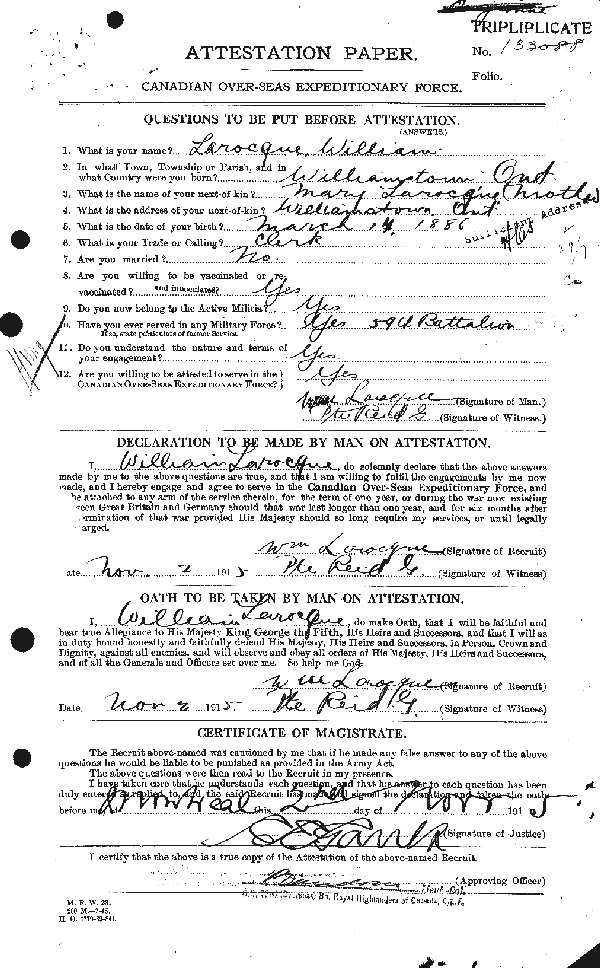 TRIPLIPLICATE
No. 133088
Folio.
ATTESTATION PAPER.
CANADIAN OVER-SEAS EXPEDITIONARY FORCE.
QUESTIONS TO BE PUT BEFORE ATTESTATION.
(ANSWERS.)
1. What is your name? Larocque William
2. In what Town, Township or Parish, and in
what Country were you born? Williamstown Ont
3. What is the name of your next-of-kin? Mary Larocque (Mother)
4. What is the address of your next-of-kin? Williamstown Ont
Sufficient Address
5. What is the date of your birth? March 14, 1886
6. What is your Trade or Calling? Clerk
7. Are you married? No.
8. Are you willing to be vaccinated or re-
vaccinated? and inoculated? Yes
9. Do you now belong to the Active Militia? Yes
10. Have you ever served in any Military Force? Yes 59th Battalion
If so, state particulars of former Service.
11. Do you understand the nature and terms of
your engagement? Yes
12. Are you willing to be attested to serve in the
CANADIAN OVER-SEAS EXPEDITIONARY FORCE? Yes
Wm Larocque (Signature of Man.)
Pte Reid G (Signature of Witness.)
DECLARATION TO BE MADE BY MAN ON ATTESTATION.
I, William Larocque, do solemnly declare that the above answers
made by me to the above questions are true, and that I am willing to fulfil the engagements by me now
made, and I hereby engage and agree to serve in the Canadian Over-Seas Expeditionary Force, and
be attached to any arm of the service therein, for the term of one year, or during the war now existing
een Great Britain and Germany should that war last longer than one year, and for six months after
ermination of that war provided His Majesty should so long require my services, or until legally
arged.
Wm Larocque (Signature of Recruit)
ate Nov. 2 1915 Pte Reid G (Signature of Witness)
OATH TO BE TAKEN BY MAN ON ATTESTATION.
I, William Larocque, do make Oath, that I will be faithful and
bear true Allegiance to His Majesty King George the Fifth, His Heirs and Successors, and that I will as
in duty bound honestly and faithfully defend His Majesty, His Heirs and Successors, in Person, Crown and
Dignity, against all enemies, and will observe and obey all orders of His Majesty, His Heirs and Successors,
and of all the Generals and Officers set over me. So help me God.
Wm Larocque (Signature of Recruit)
Date Nov 2 1915 Pte Reid G. (Signature of Witness)
CERTIFICATE OF MAGISTRATE.
The Recruit above-named was cautioned by me that if he made any false answer to any of the above
questions he would be liable to be punished as provided in the Army Act.
The above questions were then read to the Recruit in my presence.
I have taken care that he understands each question, and that his answer to each question has been
duly entered as replied to, and the said Recruit has made and signed the declaration and taken the oath
before me at Montreal this 2nd day of Nov 1915
(Signature of Justice)
I certify that the above is a true copy of the Attestation of the above-named Recruit.
Lieut-Col. (Approving Officer)
Bn. Royal Highlanders of Canada, C.E.F.
M. F. W. 23.